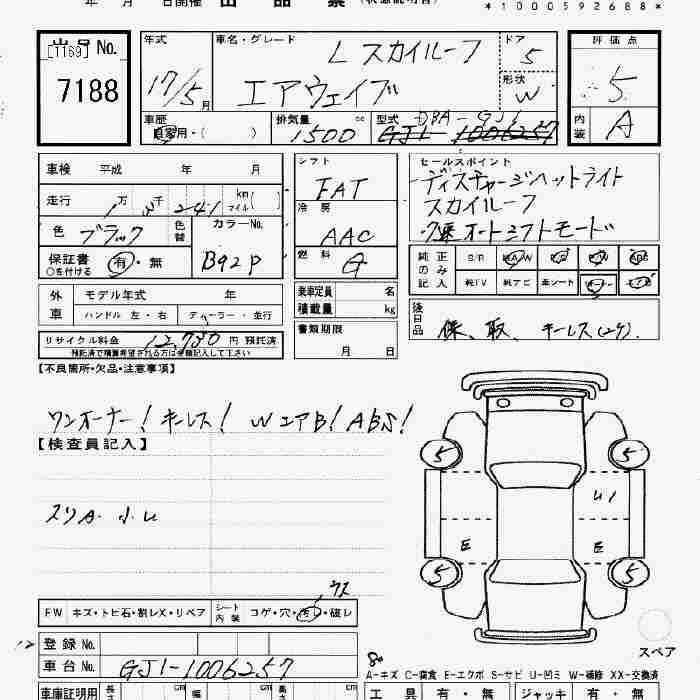 年 月 日開催 出 品 票
*10005926888*
出品 No.
[1169]
7188
年式
17/5月
車名・グレード
L スカイルーフ
エアウェイブ
ドア
5
形状
W
評価点
5
内装
A
車歴
自家用・( )
排気量 cc
1500
型式 DBA-GJ1
GJ1-1006257
車検 平成 年 月
走行 万 千 241 km マイル( )
色 ブラック
色替
カラーNo.
B92P
保証書 有・無
○を付ける
シフト
FAT
冷房
AAC
燃料
G
セールスポイント
ディスチャージヘットライト
スカイルーフ
7速オートシフトモード
純正のみ記入
S/R A/W P/S P/W ABS
純TV 純ナビ 革シート
外車
モデル年式 年
ハンドル 左・右
ディーラー・並行
乗車定員 名
積載量 kg
書類期限
月 日
後日品
保、取、キーレス(2ケ)
リサイクル料金 12,730 円 預託済
預託済で積算希望される方は金額記入して下さい
【不良箇所・欠品・注意事項】
ワンオーナー! キーレス! WエアB! ABS!
【検査員記入】
スリA 小レ
5
5
U1
E
E
5
5
スペア
FW キズ・トビ石・割レX・リペア
シート内装 コゲ・穴・汚レ・破レ
ウス
登録 No.
車台 No. GJ1-1006257
A-キズ C-腐食 E-エクボ S-サビ U-凹ミ W-補修 XX-交換済
車庫証明用 長さ cm 幅 cm 高さ cm
工具 有・無
ジャッキ 有・無